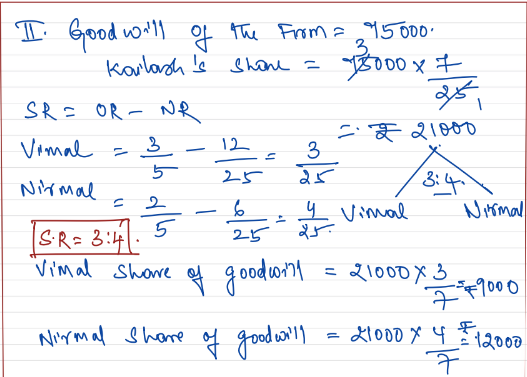 II. Goodwill of the Firm = 75000.
Kailash's Share = 75000 × 7/25
3
1
= ₹ 21000
SR = OR − NR
Vimal = 3/5 − 12/25 = 3/25
Nirmal = 2/5 − 6/25 = 4/25.
3:4.
Vimal Nirmal
S.R = 3:4.
Vimal Share of goodwill = 21000 × 3/7 = ₹9000
Nirmal Share of goodwill = 21000 × 4/7 = ₹12000